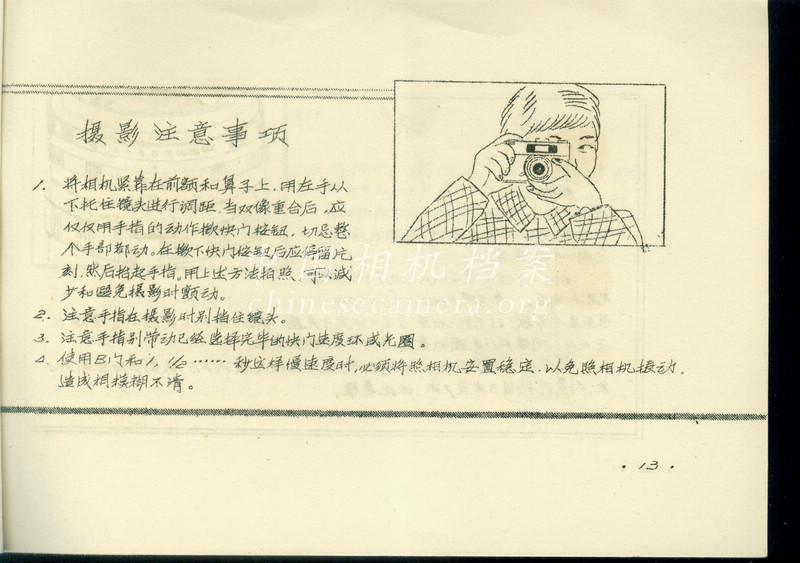 摄影注意事项
1. 将相机紧靠在前额和鼻子上，用左手从
下托住镜头进行调距，当双像重合后，应
仅仅用手指的动作揿快门按钮，切忌整
个手部都动。在揿下快门按钮后应停留片
刻，然后抬起手指。用上述方法拍照，可以减
少和避免摄影时颤动。
2. 注意手指在摄影时别挡住镜头。
3. 注意手指别带动已经选择完毕的快门速度环或光圈。
4. 使用B门和1, 1/2……秒这样慢速度时，必须将照相机安置稳定，以免照相机振动，
造成相模糊不清。
中国相机档案
chinesecamera.org
·13·